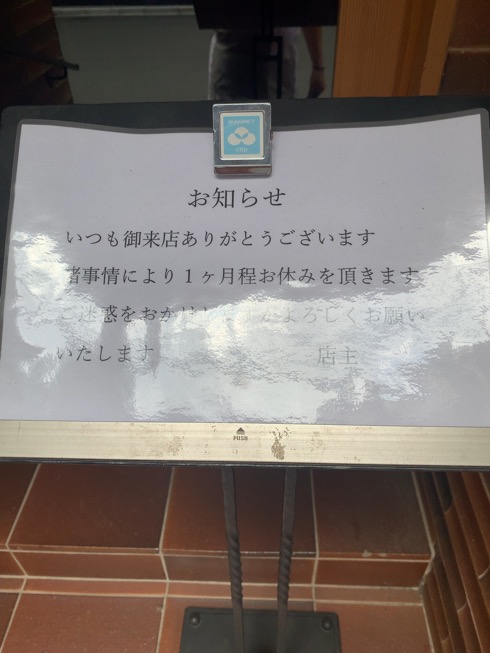 お知らせ
いつも御来店ありがとうございます
諸事情により1ヶ月程お休みを頂きます
ご迷惑をおかけしますがよろしくお願い
いたします 店主
PUSH